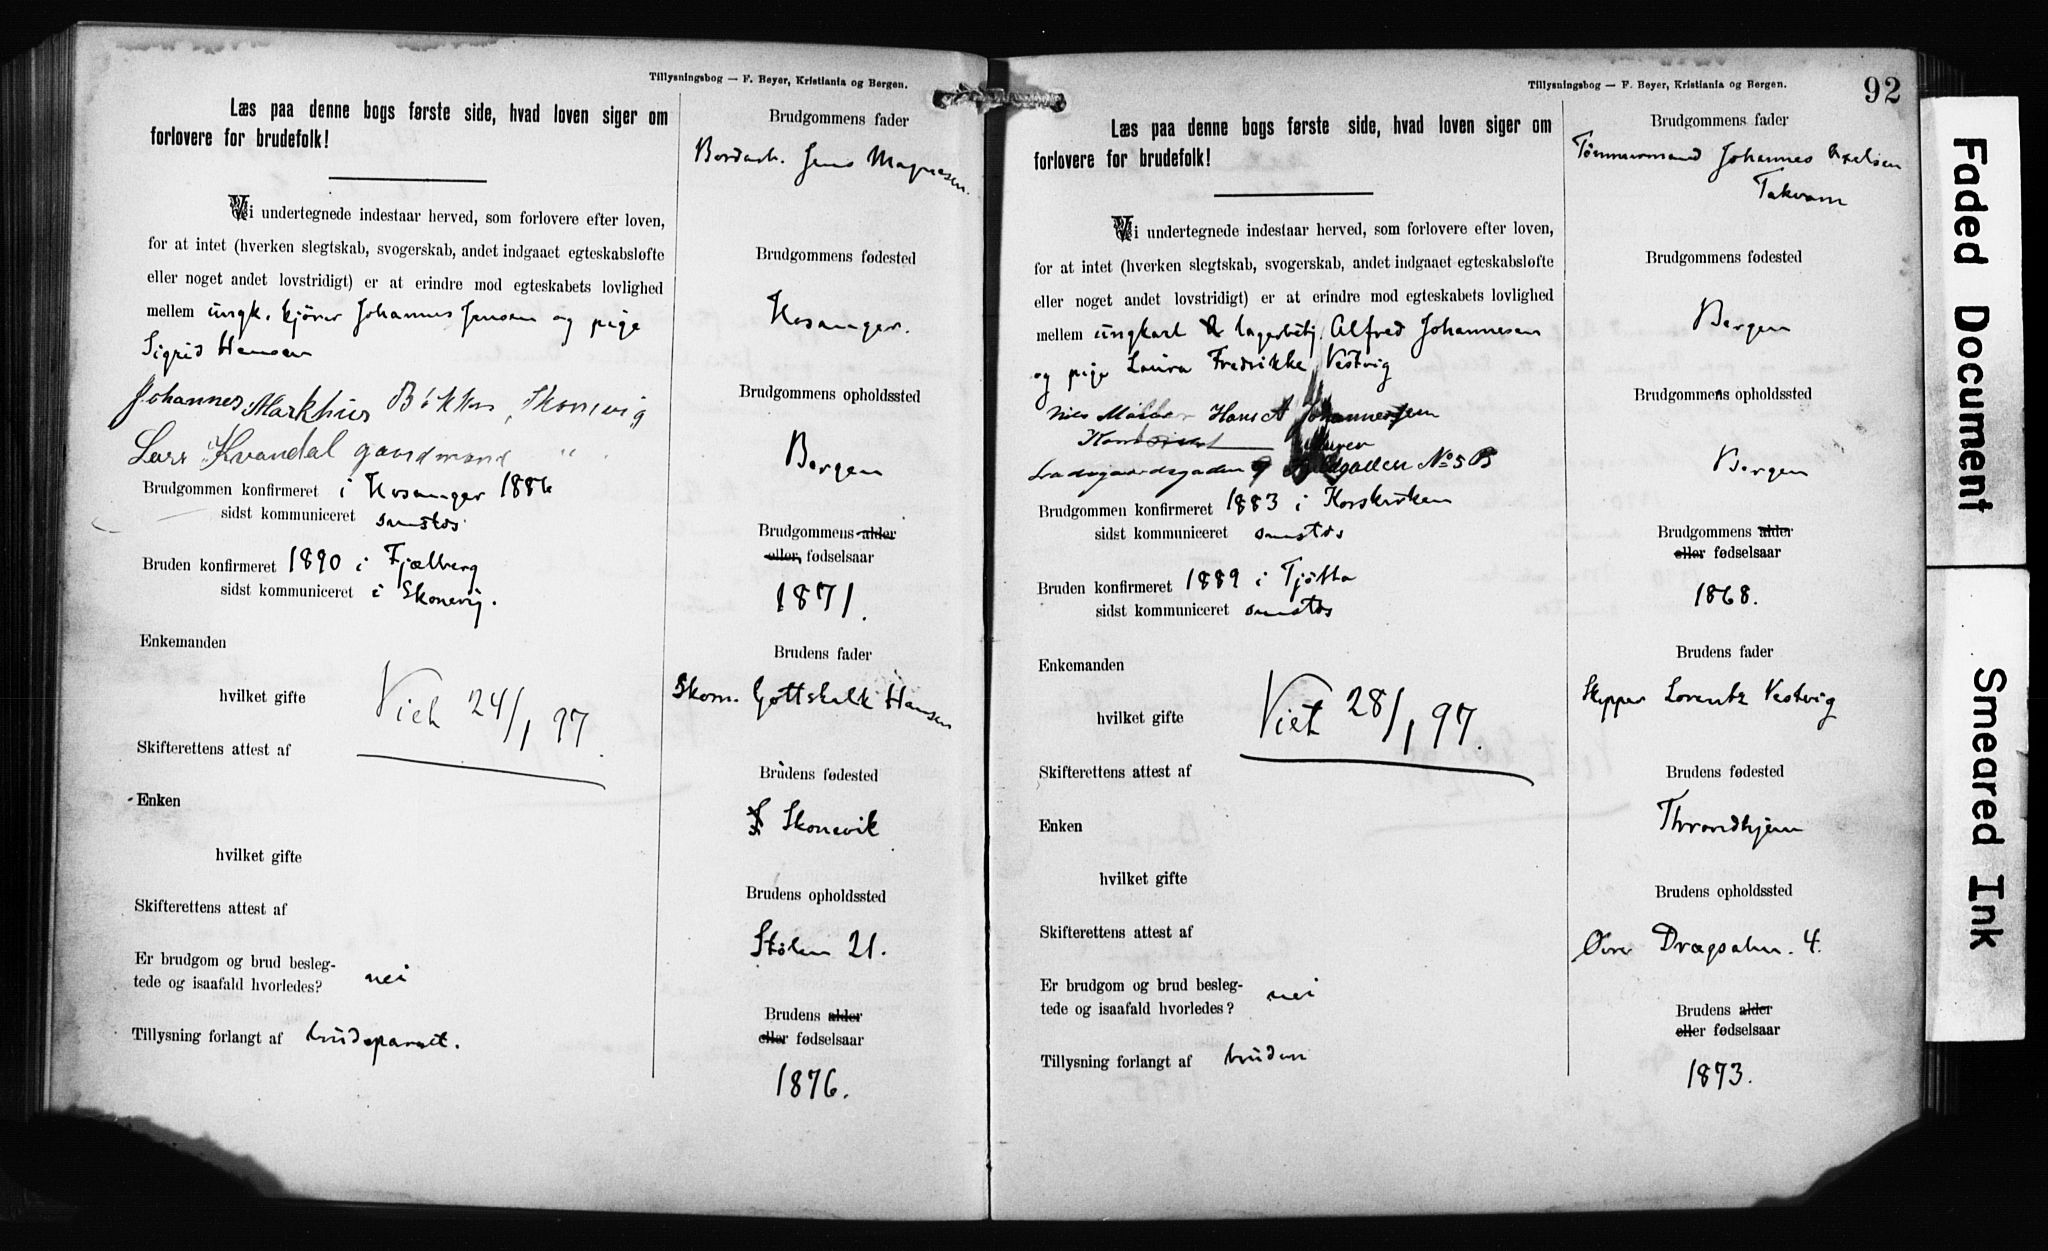 Tillysningsbog — F. Beyer, Kristiania og Bergen.
Læs paa denne bogs første side, hvad loven siger om
forlovere for brudefolk!
Vi undertegnede indestaar herved, som forlovere efter loven,
for at intet (hverken slegtskab, svogerskab, andet indgaaet egteskabsløfte
eller noget andet lovstridigt) er at erindre mod egteskabets lovlighed
mellem ungk. kjører Johannes Jensen og pige
Sigrid Hansen
Johannes Markhus Bökker, Skonevig
Lars Kvandal gaardmand " "
Brudgommen konfirmeret i Hosanger 1886
sidst kommuniceret smstds
Bruden konfirmeret 1890 i Fjælberg
sidst kommuniceret i Skonevig.
Enkemanden
hvilket gifte
Viet 24/1 97.
Skifterettens attest af
Enken
hvilket gifte
Skifterettens attest af
Er brudgom og brud besleg-
tede og isaafald hvorledes? nei
Tillysning forlangt af brudeparret.
Brudgommens fader
Bordarb. Jens Magnesen.
Brudgommens fødested
Hosanger.
Brudgommens opholdssted
Bergen
Brudgommens alder
eller fødselsaar
1871.
Brudens fader
Skom. Gottskalk Hansen
Brudens fødested
Skonevik
Brudens opholdssted
Stølen 21.
Brudens alder
eller fødselsaar
1876.
Tillysningsbog — F. Beyer, Kristiania og Bergen.
92
Læs paa denne bogs første side, hvad loven siger om
forlovere for brudefolk!
Vi undertegnede indestaar herved, som forlovere efter loven,
for at intet (hverken slegtskab, svogerskab, andet indgaaet egteskabsløfte
eller noget andet lovstridigt) er at erindre mod egteskabets lovlighed
mellem ungkarl lagerbetj. Alfred Johannesen
og pige Laura Fredrikke Vestvig
Nils Hans A Johannessen
Murer
Ladegaardsgaden 9 No 5 B
Brudgommen konfirmeret 1883 i Korskirken
sidst kommuniceret smstds
Bruden konfirmeret 1889 i Tjøtta
sidst kommuniceret smstds
Enkemanden
hvilket gifte
Viet 28/1 97.
Skifterettens attest af
Enken
hvilket gifte
Skifterettens attest af
Er brudgom og brud besleg-
tede og isaafald hvorledes? nei
Tillysning forlangt af bruden
Brudgommens fader
Tømmermand Johannes Axelsen
Takvam
Brudgommens fødested
Bergen
Brudgommens opholdssted
Bergen
Brudgommens alder
eller fødselsaar
1868.
Brudens fader
Skipper Lorentz Vestvig
Brudens fødested
Throndhjem
Brudens opholdssted
Øvre Dragsalm. 4.
Brudens alder
eller fødselsaar
1873.
Faded Document
Smeared Ink